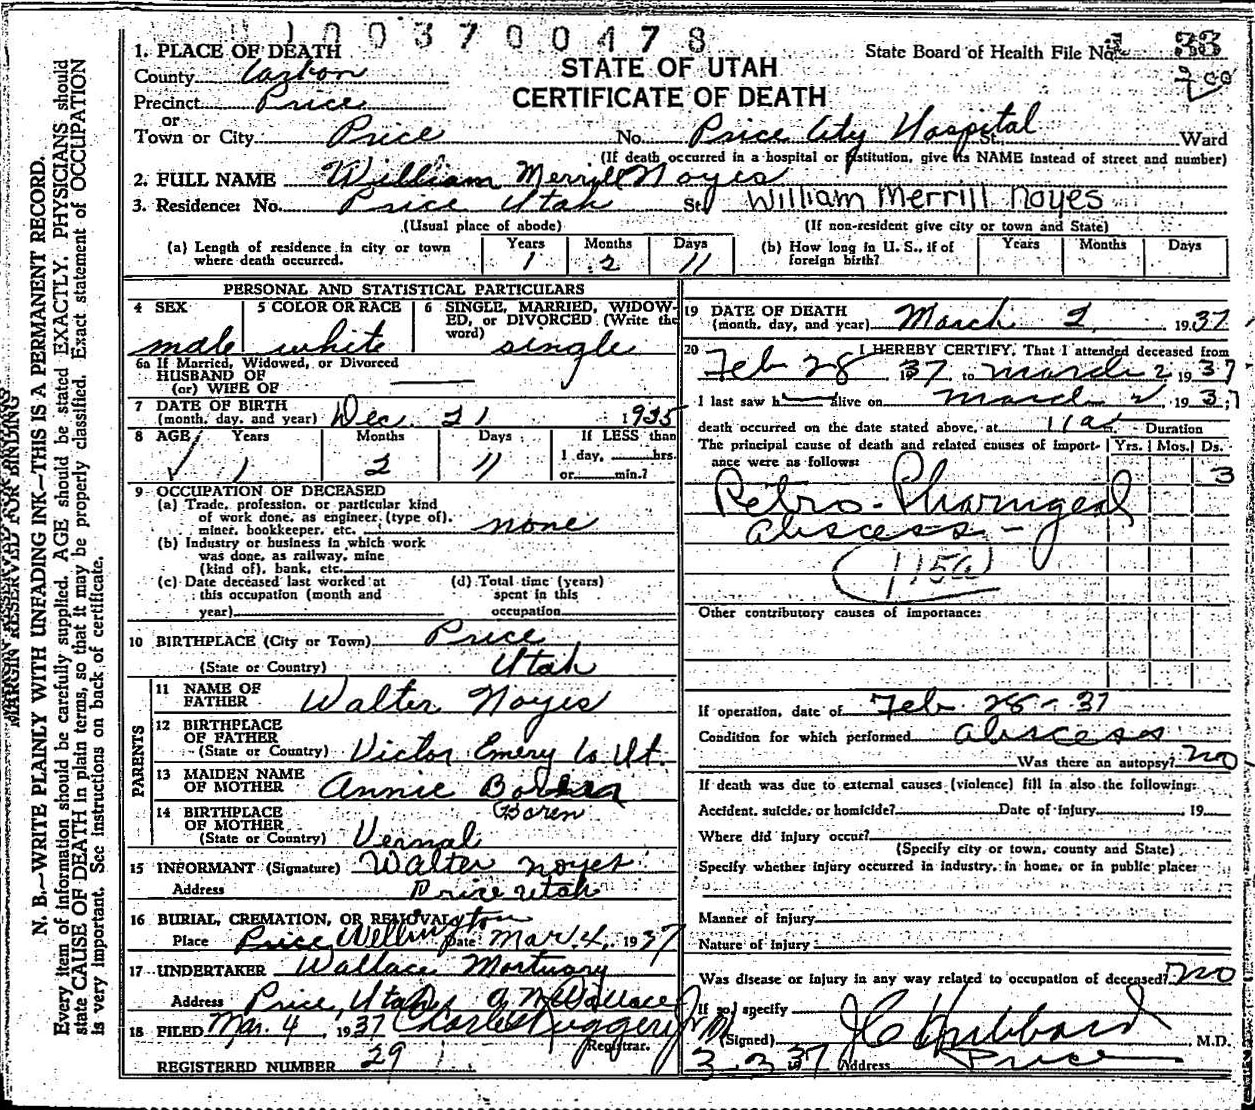 1003700478
1. PLACE OF DEATH
County Carbon
STATE OF UTAH
State Board of Health File No. 33
Precinct Price
CERTIFICATE OF DEATH
or
Town or City Price No. Price City Hospital St. Ward
(If death occurred in a hospital or institution, give its NAME instead of street and number)
2. FULL NAME William Merrill Noyes
3. Residence: No. Price Utah St. William Merrill Noyes
(Usual place of abode) (If non-resident give city or town and State)
(a) Length of residence in city or town where death occurred. Years 1 Months 2 Days 11
(b) How long in U. S., if of foreign birth? Years Months Days
PERSONAL AND STATISTICAL PARTICULARS
4 SEX male
5 COLOR OR RACE white
6 SINGLE, MARRIED, WIDOWED, or DIVORCED (Write the word) single
6a If Married, Widowed, or Divorced
HUSBAND OF
(or) WIFE OF
7 DATE OF BIRTH
(month, day, and year) Dec 21 1935
8 AGE Years 1 Months 2 Days 11 If LESS than 1 day, hrs. or min.?
9 OCCUPATION OF DECEASED
(a) Trade, profession, or particular kind
of work done, as engineer, (type of),
miner, bookkeeper, etc. none
(b) Industry or business in which work
was done, as railway, mine
(kind of), bank, etc.
(c) Date deceased last worked at
this occupation (month and
year)
(d) Total time (years)
spent in this
occupation
10 BIRTHPLACE (City or Town) Price
(State or Country) Utah
PARENTS
11 NAME OF
FATHER Walter Noyes
12 BIRTHPLACE
OF FATHER
(State or Country) Victor Emery Co Ut.
13 MAIDEN NAME
OF MOTHER Annie
Boren
14 BIRTHPLACE
OF MOTHER
(State or Country) Vernal
15 INFORMANT (Signature) Walter Noyes
Address Price Utah
16 BURIAL, CREMATION, OR REMOVAL
Place Price Wellington Date Mar 4, 1937
17 UNDERTAKER Wallace Mortuary
Address Price, Utah Wallace
18 FILED Mar. 4, 1937 Charles Ruggeri Jr
Registrar.
REGISTERED NUMBER 29
19 DATE OF DEATH
(month, day, and year) March 2 1937
20 I HEREBY CERTIFY, That I attended deceased from
Feb 28 1937 to March 2 1937
I last saw h alive on March 2, 1937
death occurred on the date stated above, at 11 a Duration
The principal cause of death and related causes of importance were as follows: Yrs. Mos. Ds.
3
Retro-Pharyngeal
abscess -
115a
Other contributory causes of importance:
If operation, date of Feb 28-37
Condition for which performed abscess
Was there an autopsy? no
If death was due to external causes (violence) fill in also the following:
Accident, suicide, or homicide? Date of injury 19
Where did injury occur?
(Specify city or town, county and State)
Specify whether injury occurred in industry, in home, or in public place:
Manner of injury
Nature of injury
Was disease or injury in any way related to occupation of deceased? no
If so, specify
(Signed) J C Hubbard M.D.
3-3-37 Address Price
MARGIN RESERVED FOR BINDING
N. B.—WRITE PLAINLY WITH UNFADING INK—THIS IS A PERMANENT RECORD.
Every item of information should be carefully supplied. AGE should be stated EXACTLY. PHYSICIANS should
state CAUSE OF DEATH in plain terms, so that it may be properly classified. Exact statement of OCCUPATION
is very important. See instructions on back of certificate.